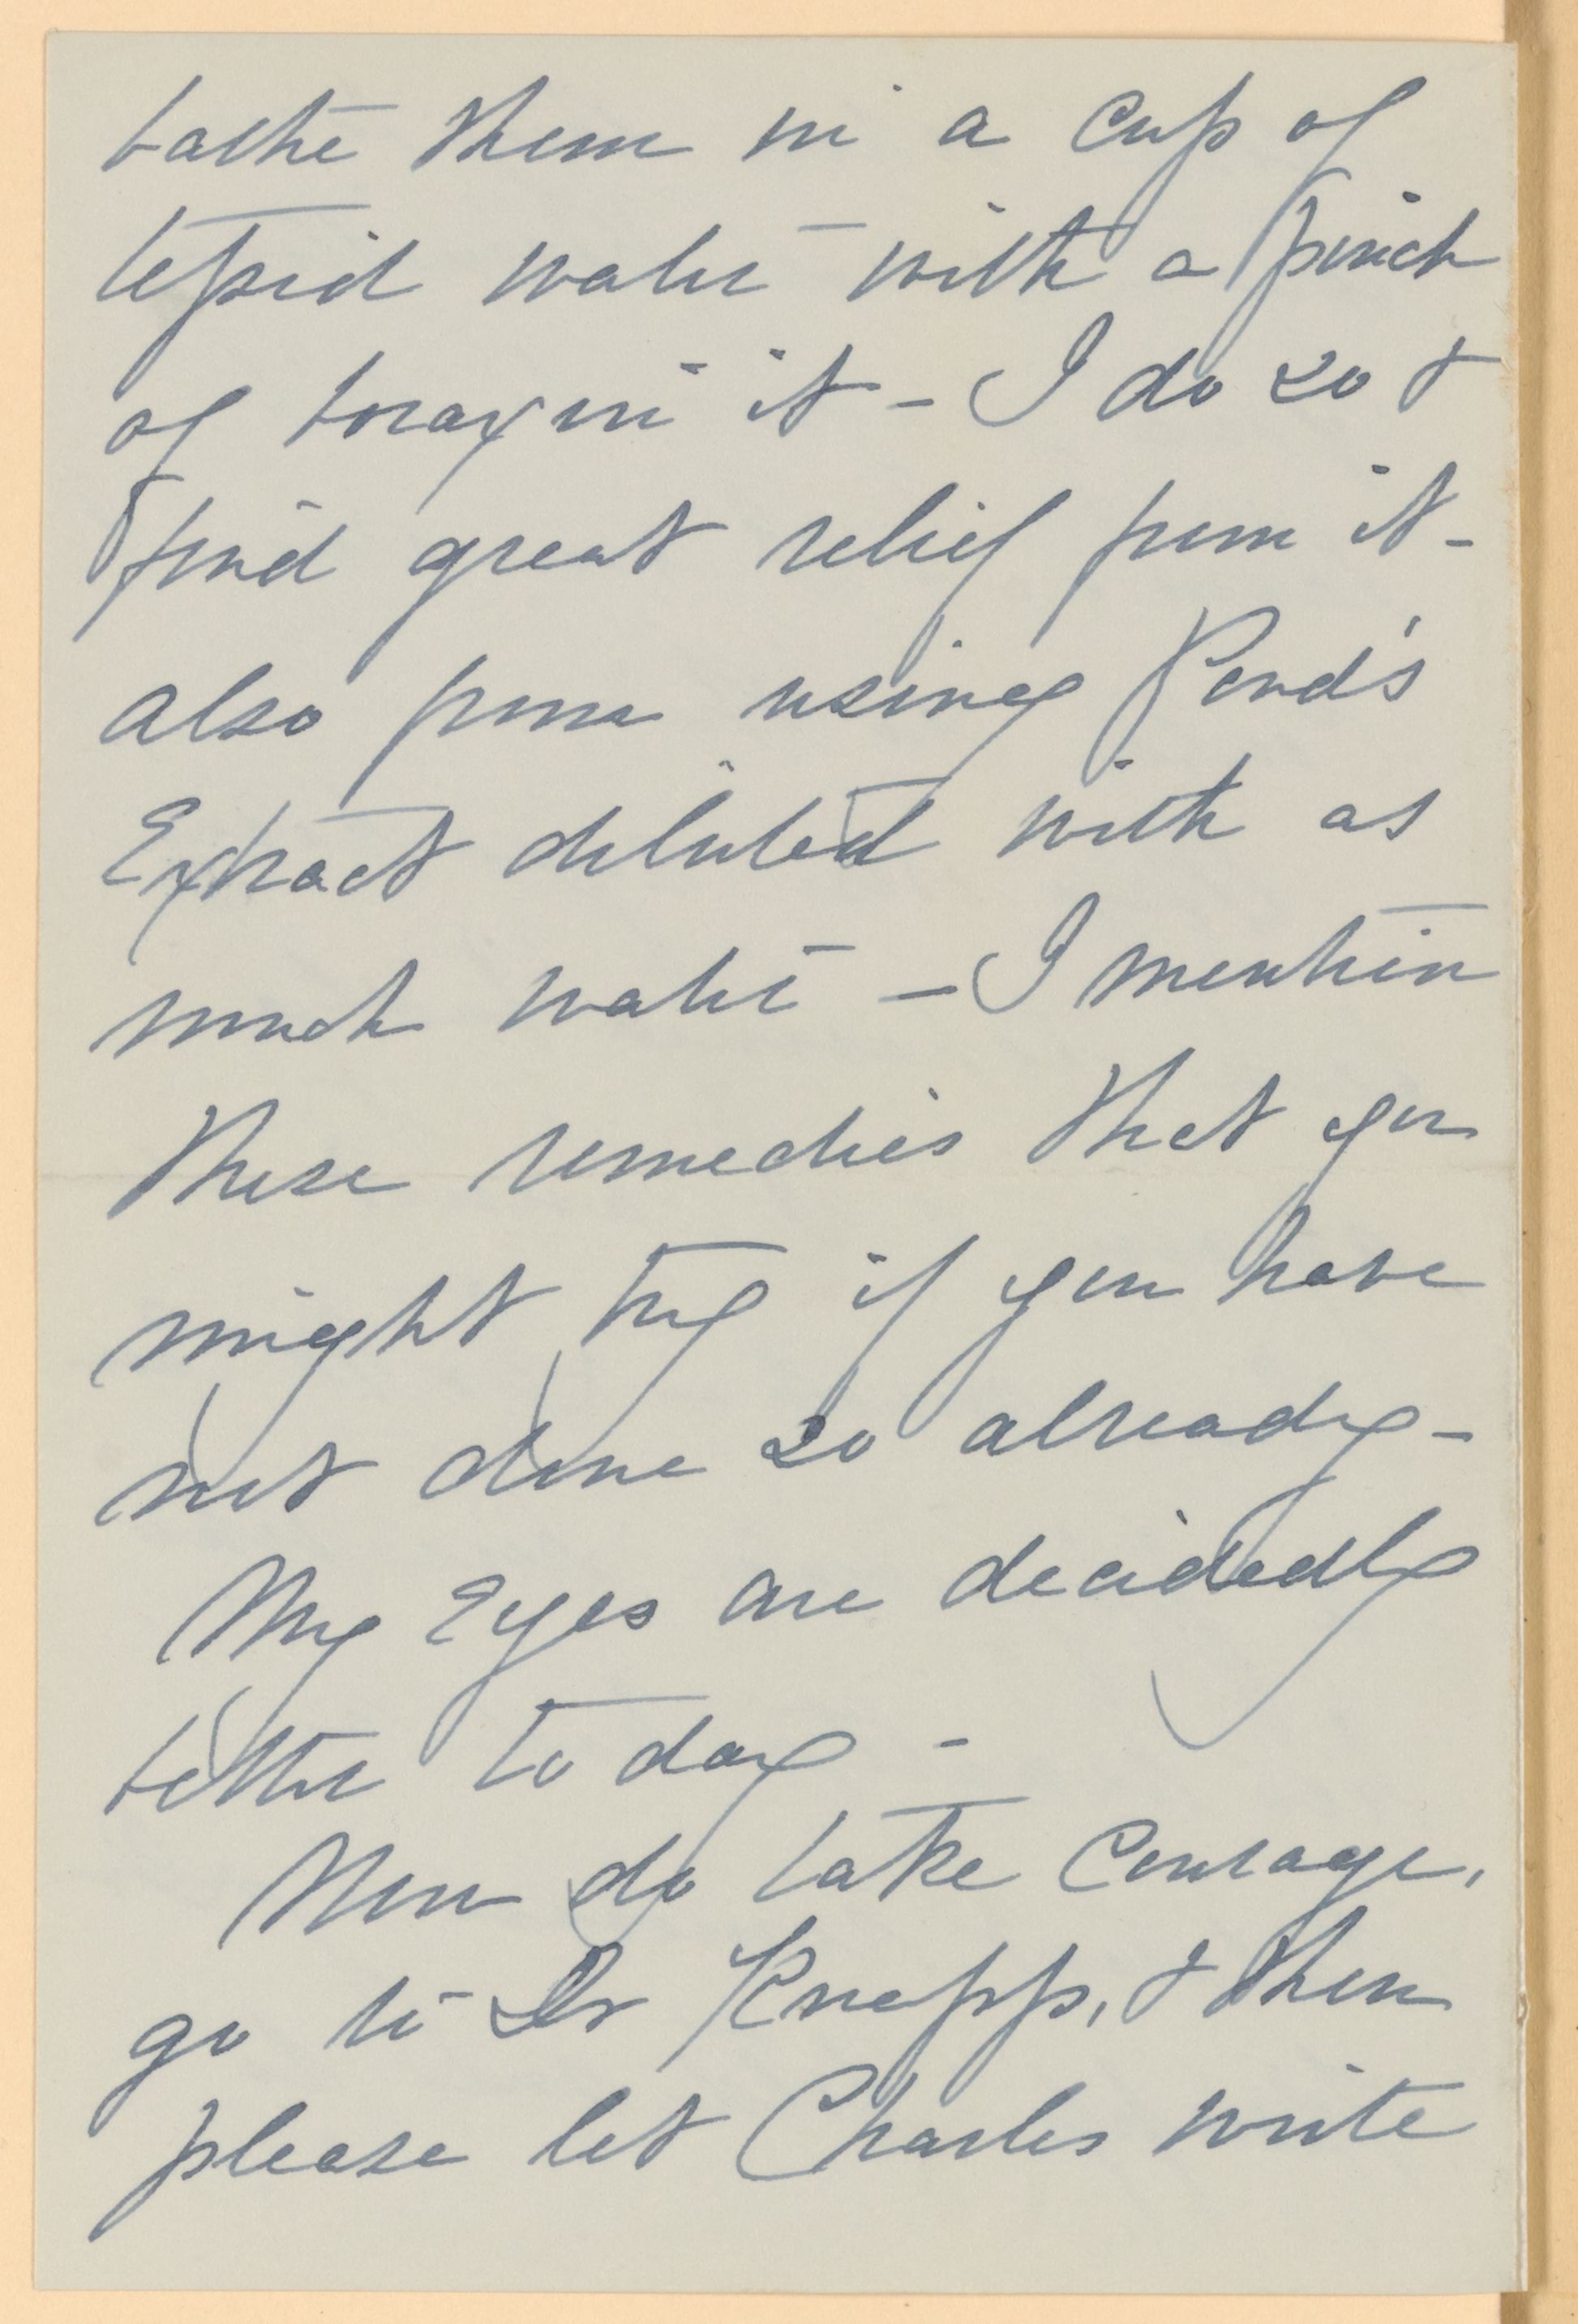 bathe them in a cup of
tepid water with a pinch
of borax in it - I do so &
find great relief from it -
also from using Pond's
Extract diluted with as
much water - I mention
these remedies that you
might try if you have
not done so already -
My Eyes are decidedly
better to day -
Now do take Courage,
go to Dr Knapp, & then
please let Charles write